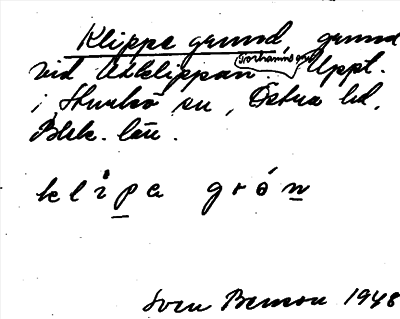 Klippe grund, grund
vid Utklippan. Uppt.
i Sturkö sn, Östra hd,
Blek. län.
klipa grón
Sven Benson 1948